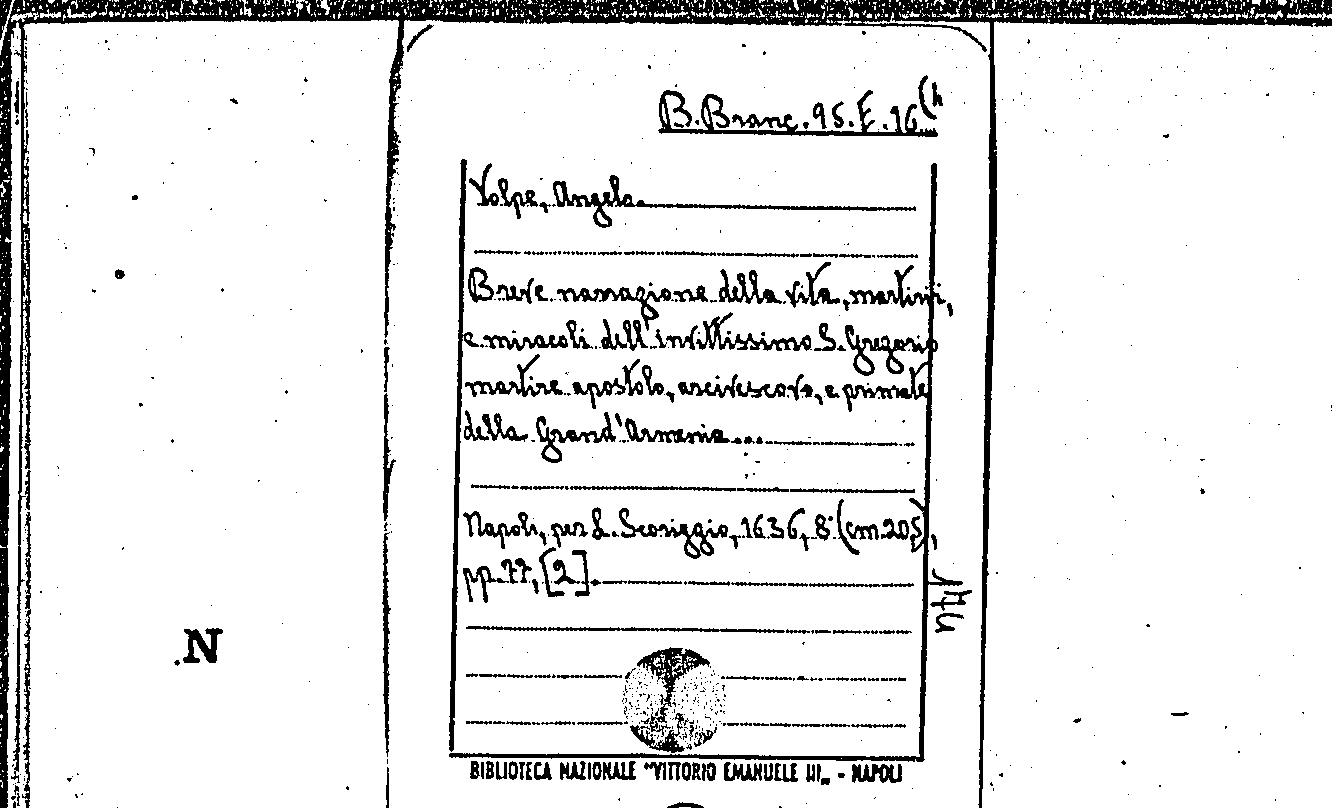 B. Branc. 95. E. 16 (h
Volpe, Angelo.
Breve narrazione della vita, martirii,
e miracoli dell'invittissimo S. Gregorio
martire apostolo, arcivescovo, e primate
della Grand'Armenia...
Napoli, per L. Scoriggio, 1636, 8° (cm. 20,5),
pp. 77, [2].
N
BIBLIOTECA NAZIONALE "VITTORIO EMANUELE III„ - NAPOLI